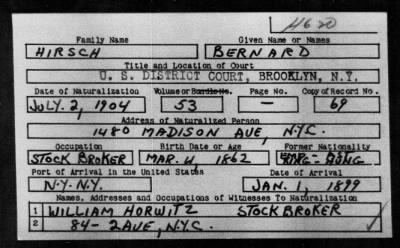 4620
Family Name Given Name or Names
HIRSCH BERNARD
Title and Location of Court
U. S. DISTRICT COURT, BROOKLYN, N.Y.
Date of Naturalization Volume or Bundle No. Page No. Copy of Record No.
JULY. 2, 1904 53 — 69
Address of Naturalized Person
1480 MADISON AVE, N.Y.C.
Occupation Birth Date or Age Former Nationality
STOCK BROKER MAR. 4, 1862
Port of Arrival in the United States Date of Arrival
N.Y. N.Y. JAN. 1, 1899
Names, Addresses and Occupations of Witnesses To Naturalization
1 WILLIAM HORWITZ STOCK BROKER
2 84- 2AVE, N.Y.C.